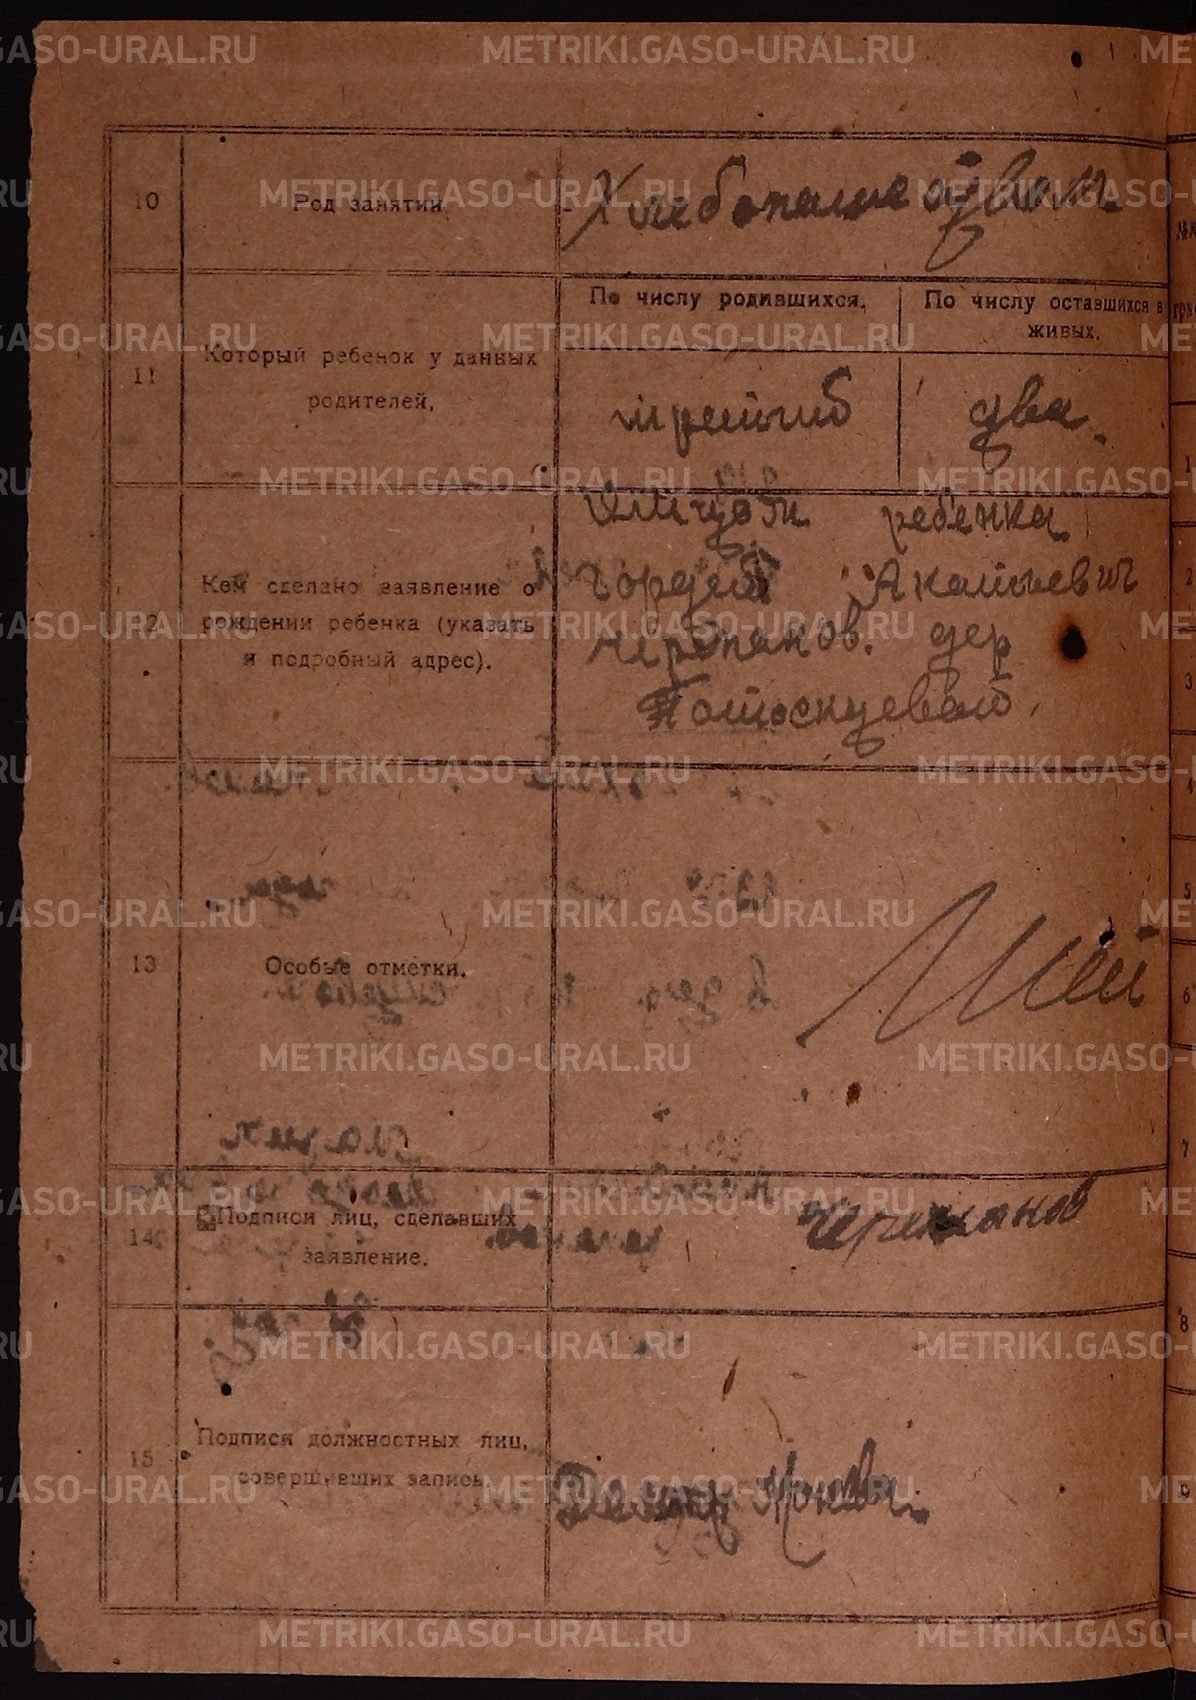 METRIKI.GASO-URAL.RU
10
Род занятий,
Хлебопашеством
11
Который ребенок у данных
родителей,
По числу родившихся,
По числу оставшихся в
живых.
третий
два.
12
Кем сделано заявление о
рождении ребенка (указать
и подробный адрес).
Отцом ребенка
Гордей
Черепанов. дер
13
Особые отметки.
Нет
14
Подписи лиц, сделавших
заявление.
Черепанов
15
Подписи должностных лиц,
совершивших запись.